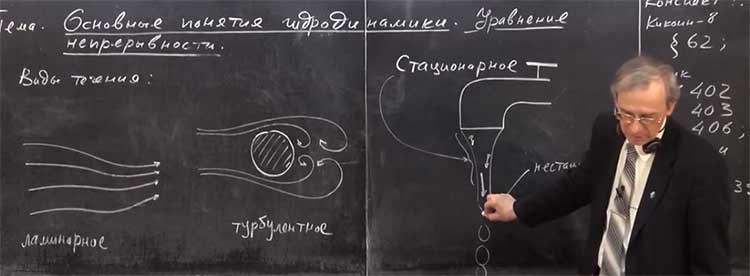 Тема. Основные понятия гидродинамики. Уравнение
непрерывности.
Виды течения:
ламинарное
турбулентное
Стационарное
неста
Конспект
Кикоин-8
§ 62;
402
403
406,